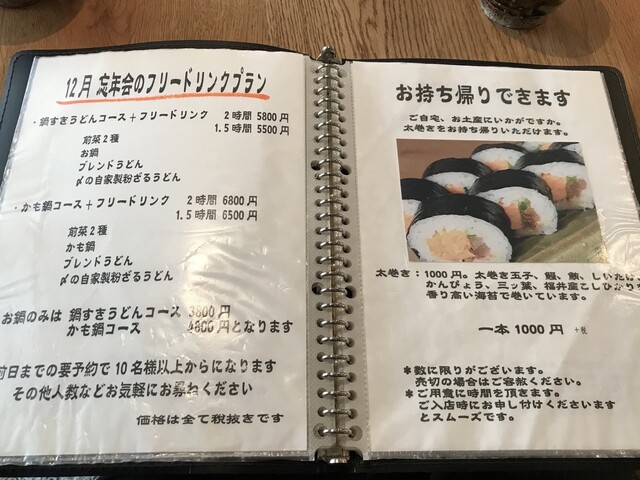 12月 忘年会のフリードリンクプラン
・鍋すきうどんコース+フリードリンク 2時間 5800円
1.5時間 5500円
前菜2種
お鍋
ブレンドうどん
〆の自家製粉ざるうどん
・かも鍋コース+フリードリンク 2時間 6800円
1.5時間 6500円
前菜2種
かも鍋
ブレンドうどん
〆の自家製粉ざるうどん
お鍋のみは 鍋すきうどんコース 3800円
かも鍋コース 4800円となります
前日までの要予約で10名様以上からになります
その他人数などお気軽にお尋ねください
価格は全て税抜きです
お持ち帰りできます
ご自宅、お土産にいかがですか。
太巻きをお持ち帰りいただけます。
太巻き:1000円。太巻き玉子、鰻、鮭、しいたけ、
かんぴょう、三ッ葉、福井産こしひかりを
香り高い海苔で巻いています。
一本 1000円 +税
*数に限りがございます。
売切の場合はご容赦ください。
*ご用意に時間を頂きます。
ご入店時にお申し付けくださいます
とスムーズです。